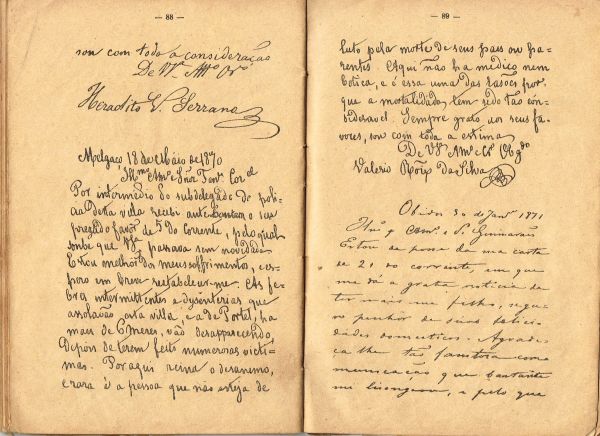 — 88 —
sou com toda a consideração
De Vª Attº Crº
Heraclito V. Serrano
Melgaço 18 de Maio de 1870
Illmº Amº e Snr Tenᵉ Corᵉˡ
Por intermedio do subdelegado de poli-
cia desta villa recebi ante-hontem o seu
presado favor de 5 do corrente, pelo qual
soube que Vª passava sem novidade
Estou melhor dos meus soffrimentos, e es-
pero em breve restabelecer-me. As fe-
bres intermittentes e dysenterias que
assolarão esta villa, e a de Portel, ha
mais de 6 mezes, vão desapparecendo,
depois de terem feito numerosas victi-
mas. Por aqui reina o desanimo,
e rara é a pessoa que não esteja de
— 89 —
luto pela morte de seus paes ou pa-
rentes. Aqui não ha medico nem
botica, e é essa uma das rasões por-
que a mortalidade tem sido tão con-
sideravel. Sempre grato aos seus fa-
vores, sou com toda a estima
De Vª Amº e Cº Obgdº
Valerio Roiz da Silva
Obidos 30 de Janº 1871
Guimarães
Estou de posse da sua carta
de 21 do corrente, em que
me dá a grata noticia de
ter mais um filho, segu-
ro penhor de suas felici-
dades domesticas. Agrade-
ço-lhe tão faustosa com-
municação que bastante
me lisongeou, e pelo que